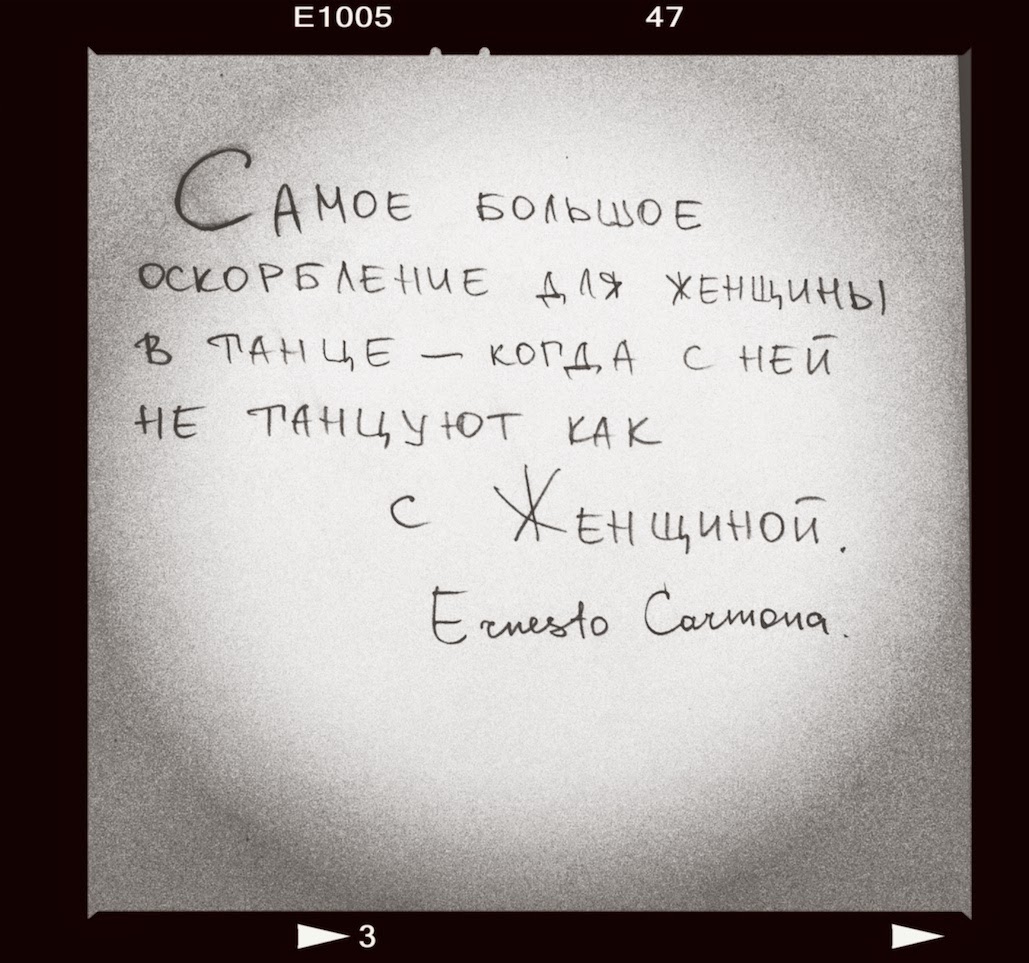 E1005 47
Самое большое
оскорбление для женщины
в танце — когда с ней
не танцуют как
с Женщиной.
Ernesto Carmona.
3